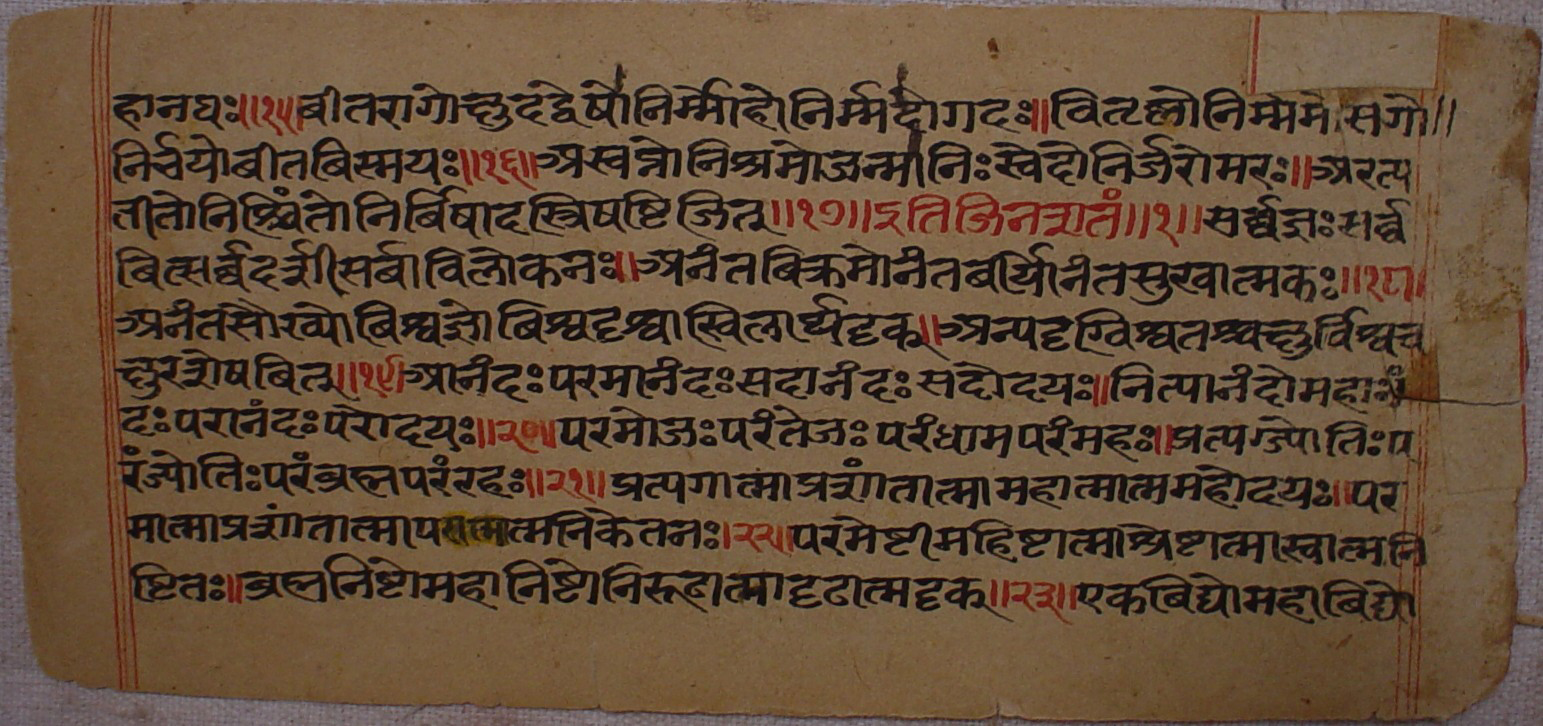 हानघः॥१५॥बीतरागोक्षुदद्वेषोनिर्म्मोहोनिर्म्मदोगदः॥वितृष्णोनिर्म्ममोसगो॥
निर्भयोबीतबिस्मयः॥१६॥अस्वप्नोनिश्रमोजन्मानिःस्वेदोनिर्जरोमरः॥अरत्य
तीतोनिश्चिंतोनिर्बिषादस्त्रिषष्टिजित्॥१७॥इतिजिनशतं॥१॥सर्व्वज्ञःसर्व्व
बित्सर्व्वदर्शीसर्बाविलोकनः॥अनंतबिक्रमोनंतबीर्योनंतसुखात्मकः॥१८॥
अनंतसौख्योबिश्वज्ञोबिश्वदृश्वाखिलार्थदृक्॥अन्यदृग्विश्वतश्चक्षुर्विश्वच
क्षुरशेषबित्॥१९॥आनंदःपरमानंदःसदानंदःसदोदयः॥नित्यानंदोमहानं
दःपरानंदःपरोदयः॥२०॥परमोजःपरंतेजःपरंधामपरंमहः॥प्रत्यग्ज्योतिःप
रंज्योतिःपरंब्रह्मपरंरहः॥२१॥प्रत्यगात्माप्रशंतात्मामहात्मात्ममहोदयः॥पर
मात्माप्रशंतात्मापरात्मात्मनिकेतनः॥२२॥परमेष्टीमहिष्टात्माश्रेष्टात्मास्वात्मनि
ष्टितः॥ब्रह्मनिष्टोमहानिष्टोनिरूढात्मादृढात्मदृक्॥२३॥एकबिद्योमहाबिद्यो